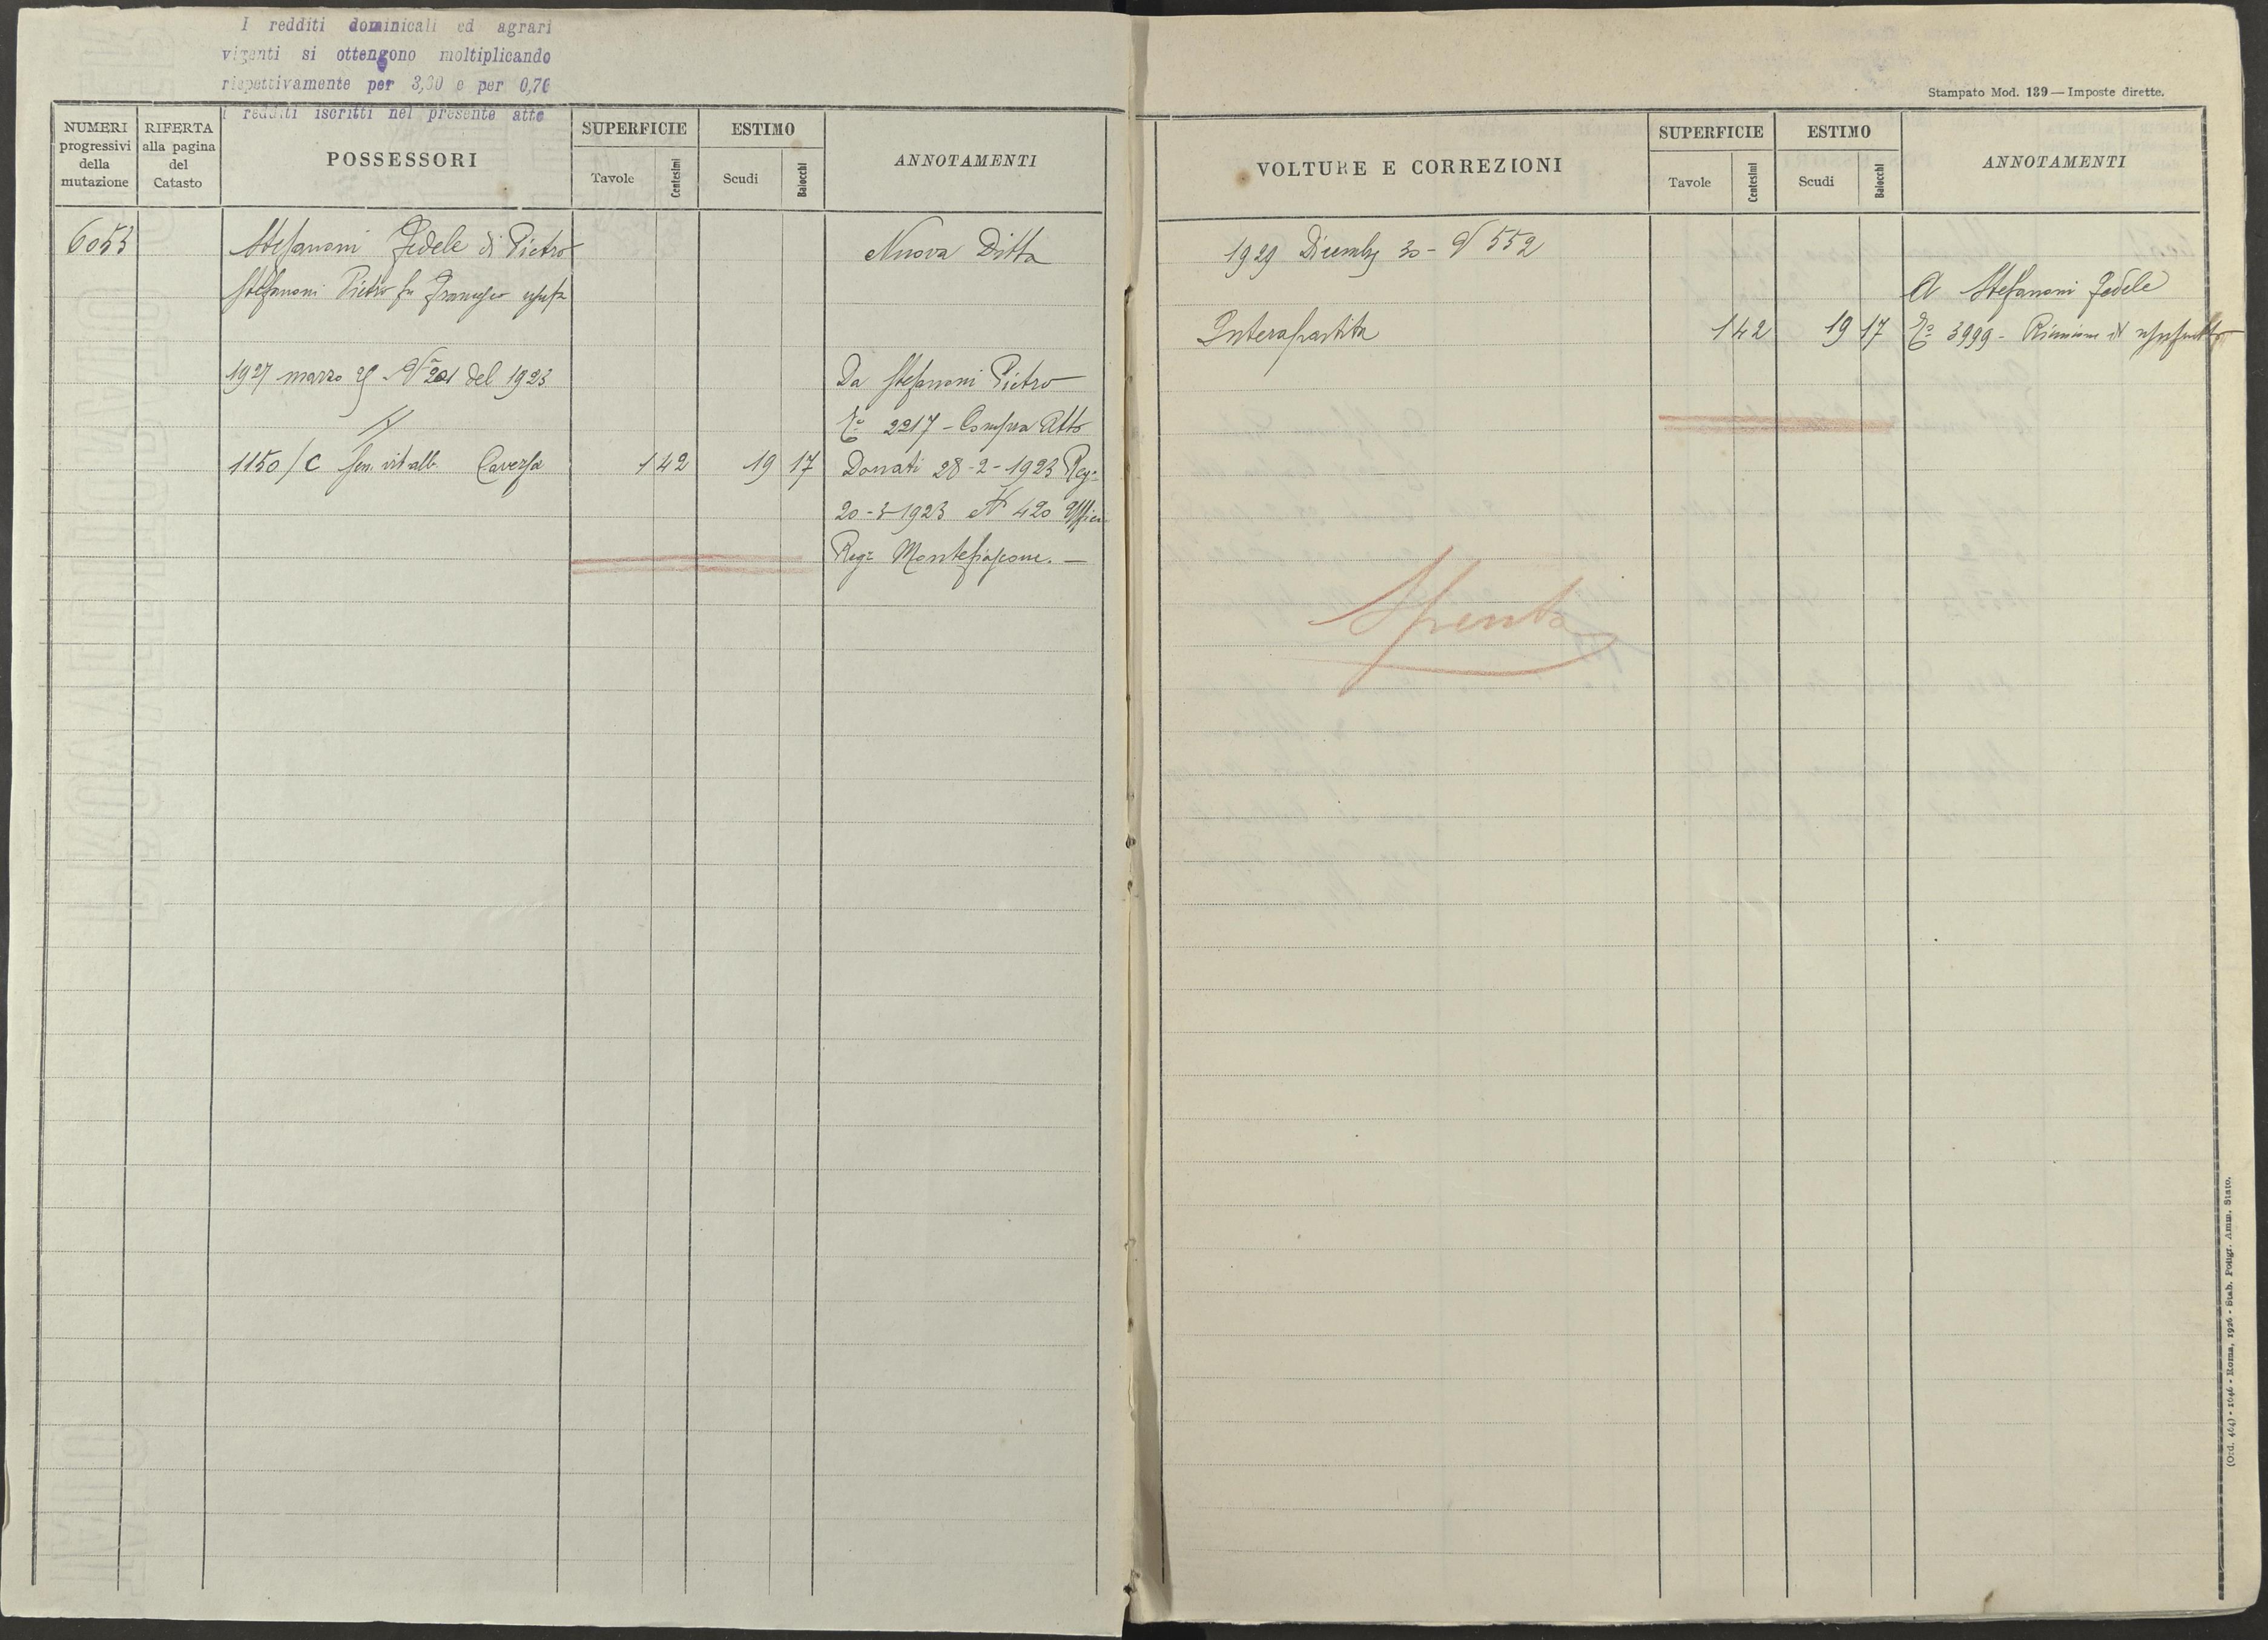 I redditi dominicali ed agrari
vigenti si ottengono moltiplicando
rispettivamente per 3,30 e per 0,70
i redditi iscritti nel presente atto
NUMERI progressivi della mutazione
RIFERTA alla pagina del Catasto
POSSESSORI
SUPERFICIE
Tavole
Centesimi
ESTIMO
Scudi
Baiocchi
ANNOTAMENTI
6053
Stefanoni Fedele di Pietro
Nuova Ditta
Stefanoni Pietro fu Francesco usufr
1927 marzo 29 - N 201 del 1923
Da Stefanoni Pietro
2217 - Compra Atto
1150/C Sem. vit. alb. Caversa 1 42 19 17 Donati 28-2-1923 Reg.
20-3-1923 N 420 Uffici
Regr Montefiascone. -
Stampato Mod. 139 — Imposte dirette.
VOLTURE E CORREZIONI
SUPERFICIE
Tavole
Centesimi
ESTIMO
Scudi
Baiocchi
ANNOTAMENTI
1929 Dicembre 30 - N 552
A Stefanoni Fedele
Intera partita 1 42 19 17 3999 - Riunione di usufrutto
Spenta
(Ord. 464) - 1646 - Roma, 1926 - Stab. Poligr. Amm. Stato.